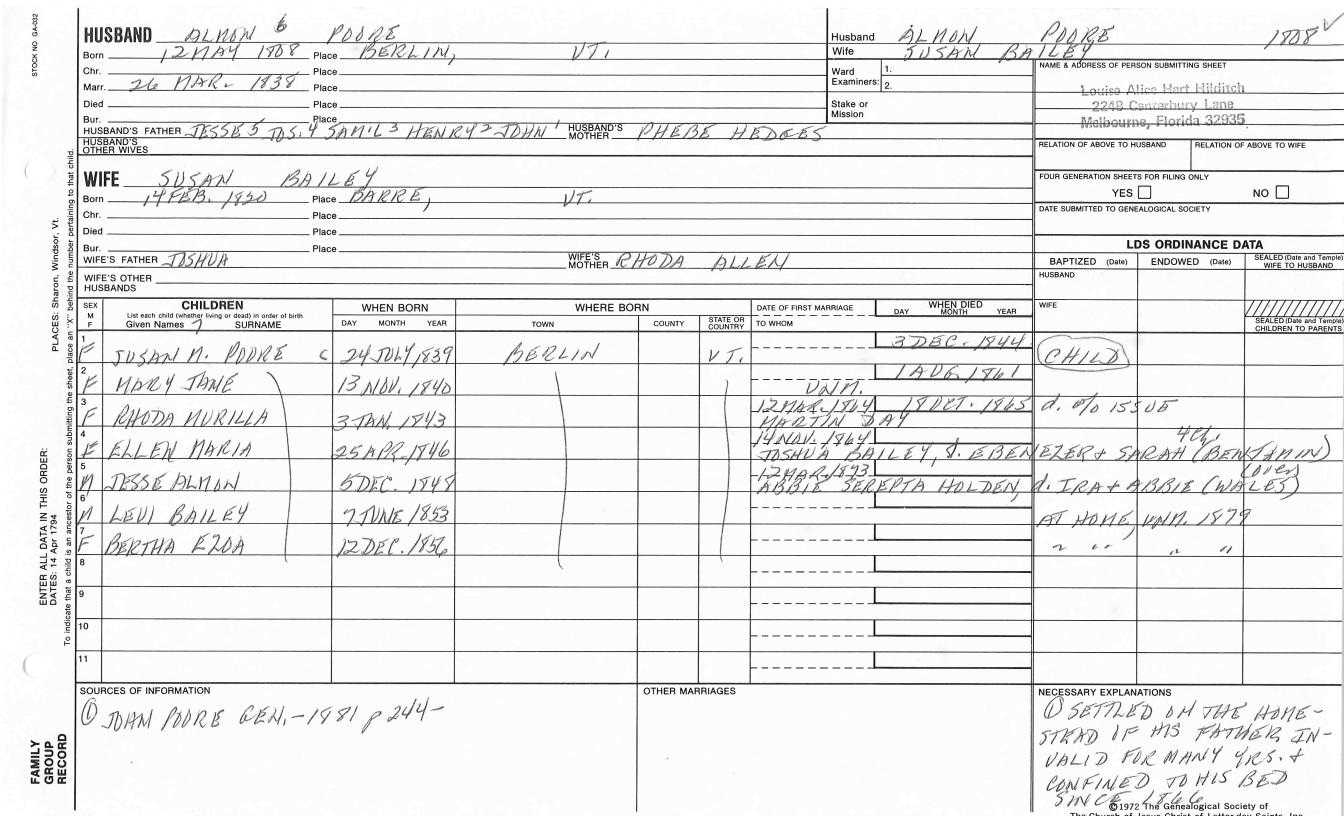 STOCK NO. GA-032
HUSBAND ALMON 6 POORE
Born 12 MAY 1808 Place BERLIN, VT.
Chr. Place
Marr. 26 MAR. 1838 Place
Died Place
Bur. Place
HUSBAND'S FATHER JESSE 5 JOS. 4 SAM'L 3 HENRY 2 JOHN 1 HUSBAND'S MOTHER PHEBE HEDGES
HUSBAND'S OTHER WIVES
Husband ALMON POORE 1808 ✓
Wife SUSAN BAILEY
Ward Examiners: 1.
2.
Stake or Mission
NAME & ADDRESS OF PERSON SUBMITTING SHEET
Louise Alice Hart Hilditch
2248 Canterbury Lane
Melbourne, Florida 32935
RELATION OF ABOVE TO HUSBAND RELATION OF ABOVE TO WIFE
FOUR GENERATION SHEETS FOR FILING ONLY
YES NO
DATE SUBMITTED TO GENEALOGICAL SOCIETY
WIFE SUSAN BAILEY
Born 14 FEB. 1820 Place BARRE, VT.
Chr. Place
Died Place
Bur. Place
WIFE'S FATHER JOSHUA WIFE'S MOTHER RHODA ALLEN
WIFE'S OTHER HUSBANDS
LDS ORDINANCE DATA
BAPTIZED (Date) ENDOWED (Date) SEALED (Date and Temple) WIFE TO HUSBAND
HUSBAND
WIFE
SEALED (Date and Temple) CHILDREN TO PARENTS
SEX M F
CHILDREN
List each child (whether living or dead) in order of birth
Given Names 7 SURNAME
WHEN BORN DAY MONTH YEAR
WHERE BORN TOWN COUNTY STATE OR COUNTRY
DATE OF FIRST MARRIAGE TO WHOM
WHEN DIED DAY MONTH YEAR
1 F SUSAN M. POORE C 24 JULY 1839 BERLIN VT. 3 DEC. 1844 CHILD
2 F MARY JANE 13 NOV. 1840 UNM. 1 AUG. 1861
3 F RHODA MURILLA 3 JAN. 1843 12 MAR. 1864 MARTIN DAY 18 OCT. 1865 d. w/o ISSUE
4 F ELLEN MARIA 25 APR. 1846 14 NOV. 1864 JOSHUA BAILEY, s. EBENEZER + SARAH (BENJAMIN) 4 ch. (over)
5 M JESSE ALMON 5 DEC. 1848 12 MAR. 1873 ABBIE SEREPTA HOLDEN, d. IRA + ABBIE (WALES)
6 M LEVI BAILEY 7 JUNE 1853 AT HOME, UNM. 1879
7 F BERTHA EZOA 12 DEC. 1856 " " " "
8
9
10
11
SOURCES OF INFORMATION
① JOHN POORE GEN. - 1881 p 244-
OTHER MARRIAGES
NECESSARY EXPLANATIONS
① SETTLED ON THE HOME-
STEAD OF HIS FATHER, IN-
VALID FOR MANY YRS. +
CONFINED TO HIS BED
SINCE 1866
©1972 The Genealogical Society of
The Church of Jesus Christ of Latter-day Saints, Inc.
PLACES: Sharon, Windsor, Vt.
To indicate that a child is an ancestor of the person submitting the sheet, place an "X" behind the number pertaining to that child.
ENTER ALL DATA IN THIS ORDER:
DATES: 14 Apr 1794
FAMILY
GROUP
RECORD